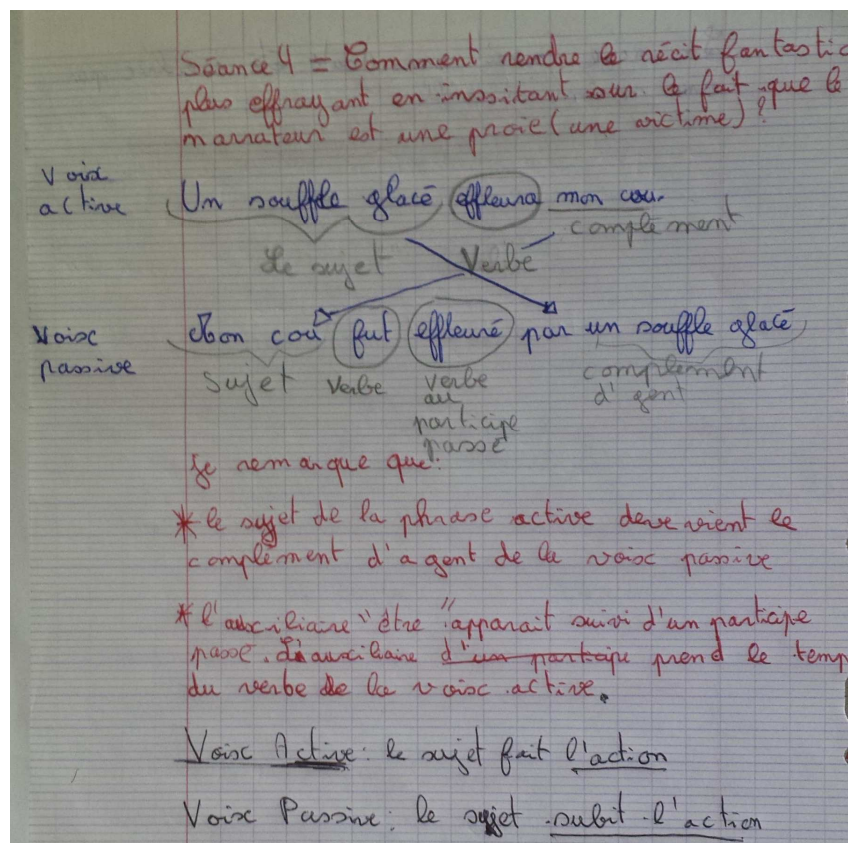 Séance 4 = Comment rendre le récit fantastic
plus effrayant en inssitant sur le fait que le
marrateur est une proie (une victime) ?
Voix
active
Un souffle glacé effleura mon cou.
complément
Le sujet
Verbe
Mon cou fut effleuré par un souffle glacé
Voix
passive
sujet verbe verbe complemment
au d'gent
participe
passé
Je remarque que:
* le sujet de la phrase active devevient le
complément d'agent de la voix passive
* l'auxciliaire "être" apparait suivi d'un participe
passé. L'auxciliaire d'un participe prend le temp
du verbe de la voix active.
Voix Active: le sujet fait l'action
Voix Passive: le sujet subit l'action